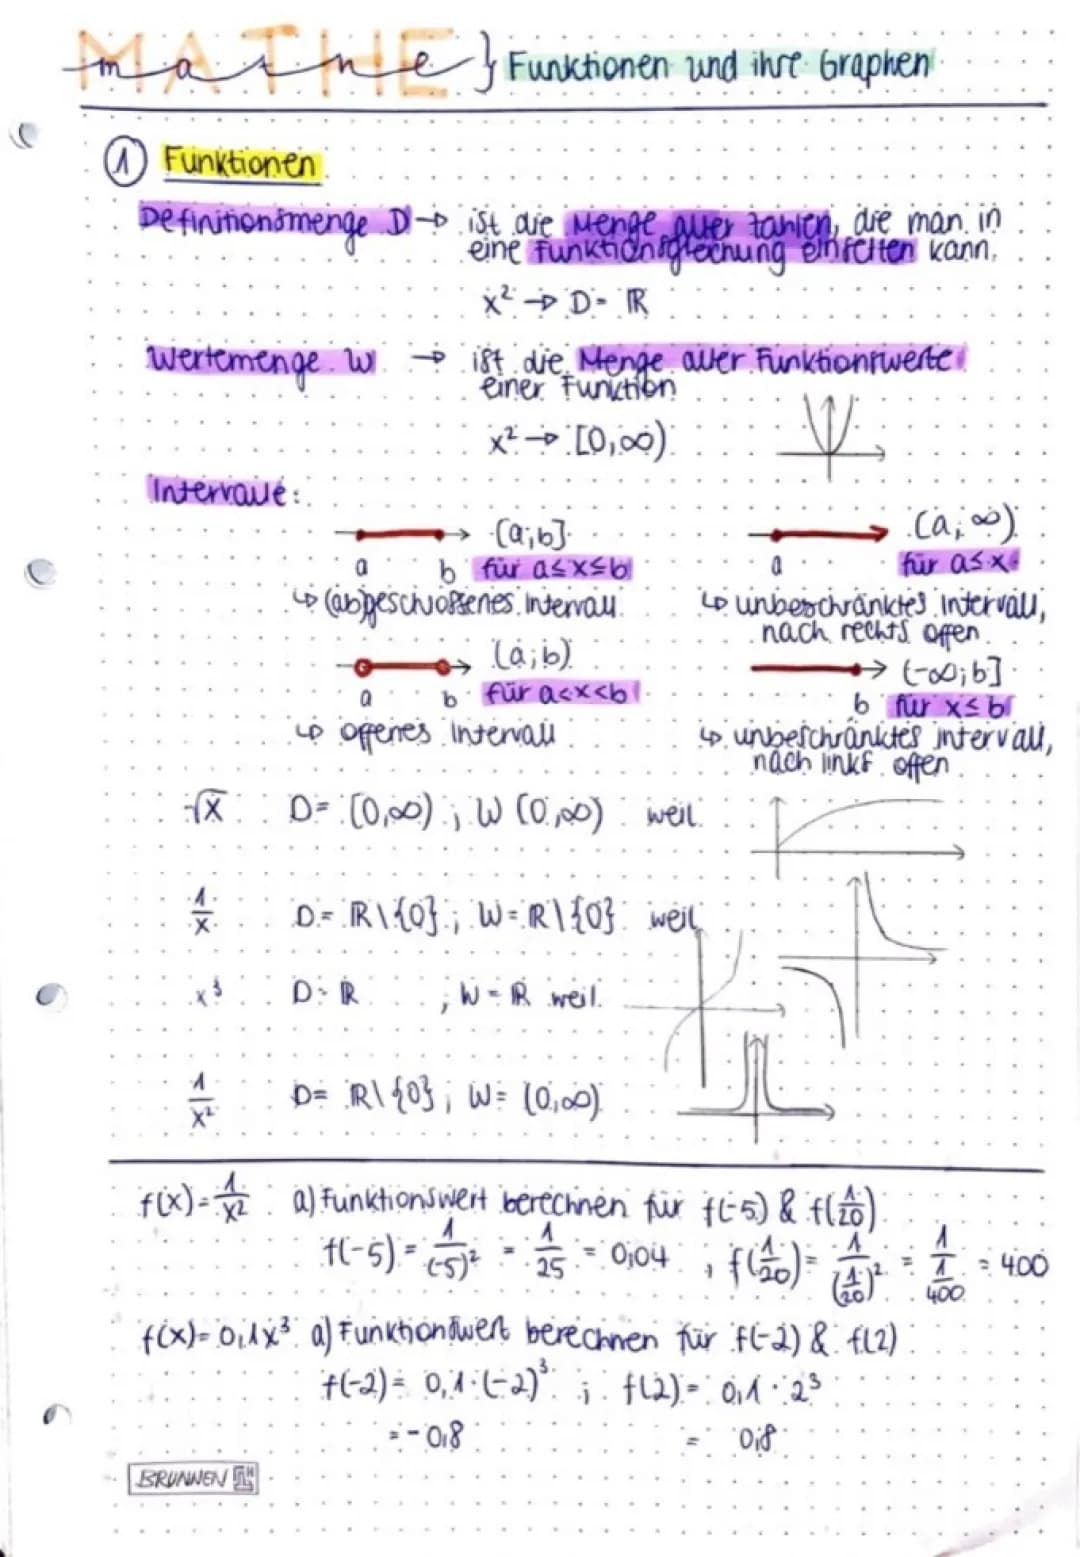 MATHE
mathe } Funktionen und ihre Graphen
① Funktionen
Definitionsmenge D → ist die Menge aller Zahlen, die man in
eine Funktionsgleichung einsetzen kann.
x² → D = ℝ
Wertemenge W → ist die Menge aller Funktionswerte
einer Funktion
x² → [0,∞)
Intervalle:
[a;b] (a,∞)
a b für a≤x≤b a für a≤x
↳ (ab)geschlossenes Intervall ↳ unbeschränktes Intervall,
nach rechts offen
(a;b) (-∞;b]
a b für a<x<b b für x≤b
↳ offenes Intervall ↳ unbeschränktes intervall,
nach links offen
√x D= [0,∞) ; W (0,∞) weil
1/x D= ℝ\{0} ; W= ℝ\{0} weil
x³ D= ℝ ; W = ℝ weil
1/x² D= ℝ\{0} ; W= (0,∞)
f(x)= 1/x² a) Funktionswert berechnen für f(-5) & f(1/20)
f(-5) = 1/(-5)² = 1/25 = 0,04 ; f(1/20) = 1/(1/20)² = 1/(1/400) = 400
f(x)= 0,1x³ a) Funktionswert berechnen für f(-2) & f(2)
f(-2) = 0,1·(-2)³ ; f(2) = 0,1 · 2³
= -0,8 = 0,8
BRUNNEN